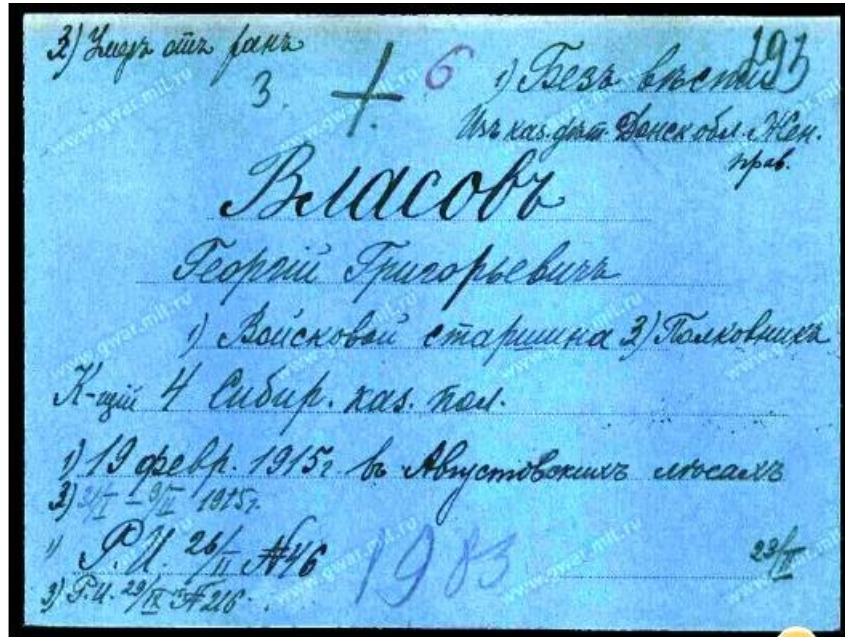 3) Умеръ отъ ранъ
293
3. + 6 1) Безъ вѣсти
Изъ каз. дѣт. Донск. обл. Жен.
прав.
Власовъ
Георгій Григорьевичъ
1) Войсковой старшина 3) Полковникъ
К-щій 4 Сибир. каз. пол.
1) 19 февр. 1915г. въ Августовскихъ лѣсахъ
3) 1915г.
1) Р.И. 26/II №46
1983
23/II
3) Р.И. 29/IX №216.
www.gwar.mil.ru